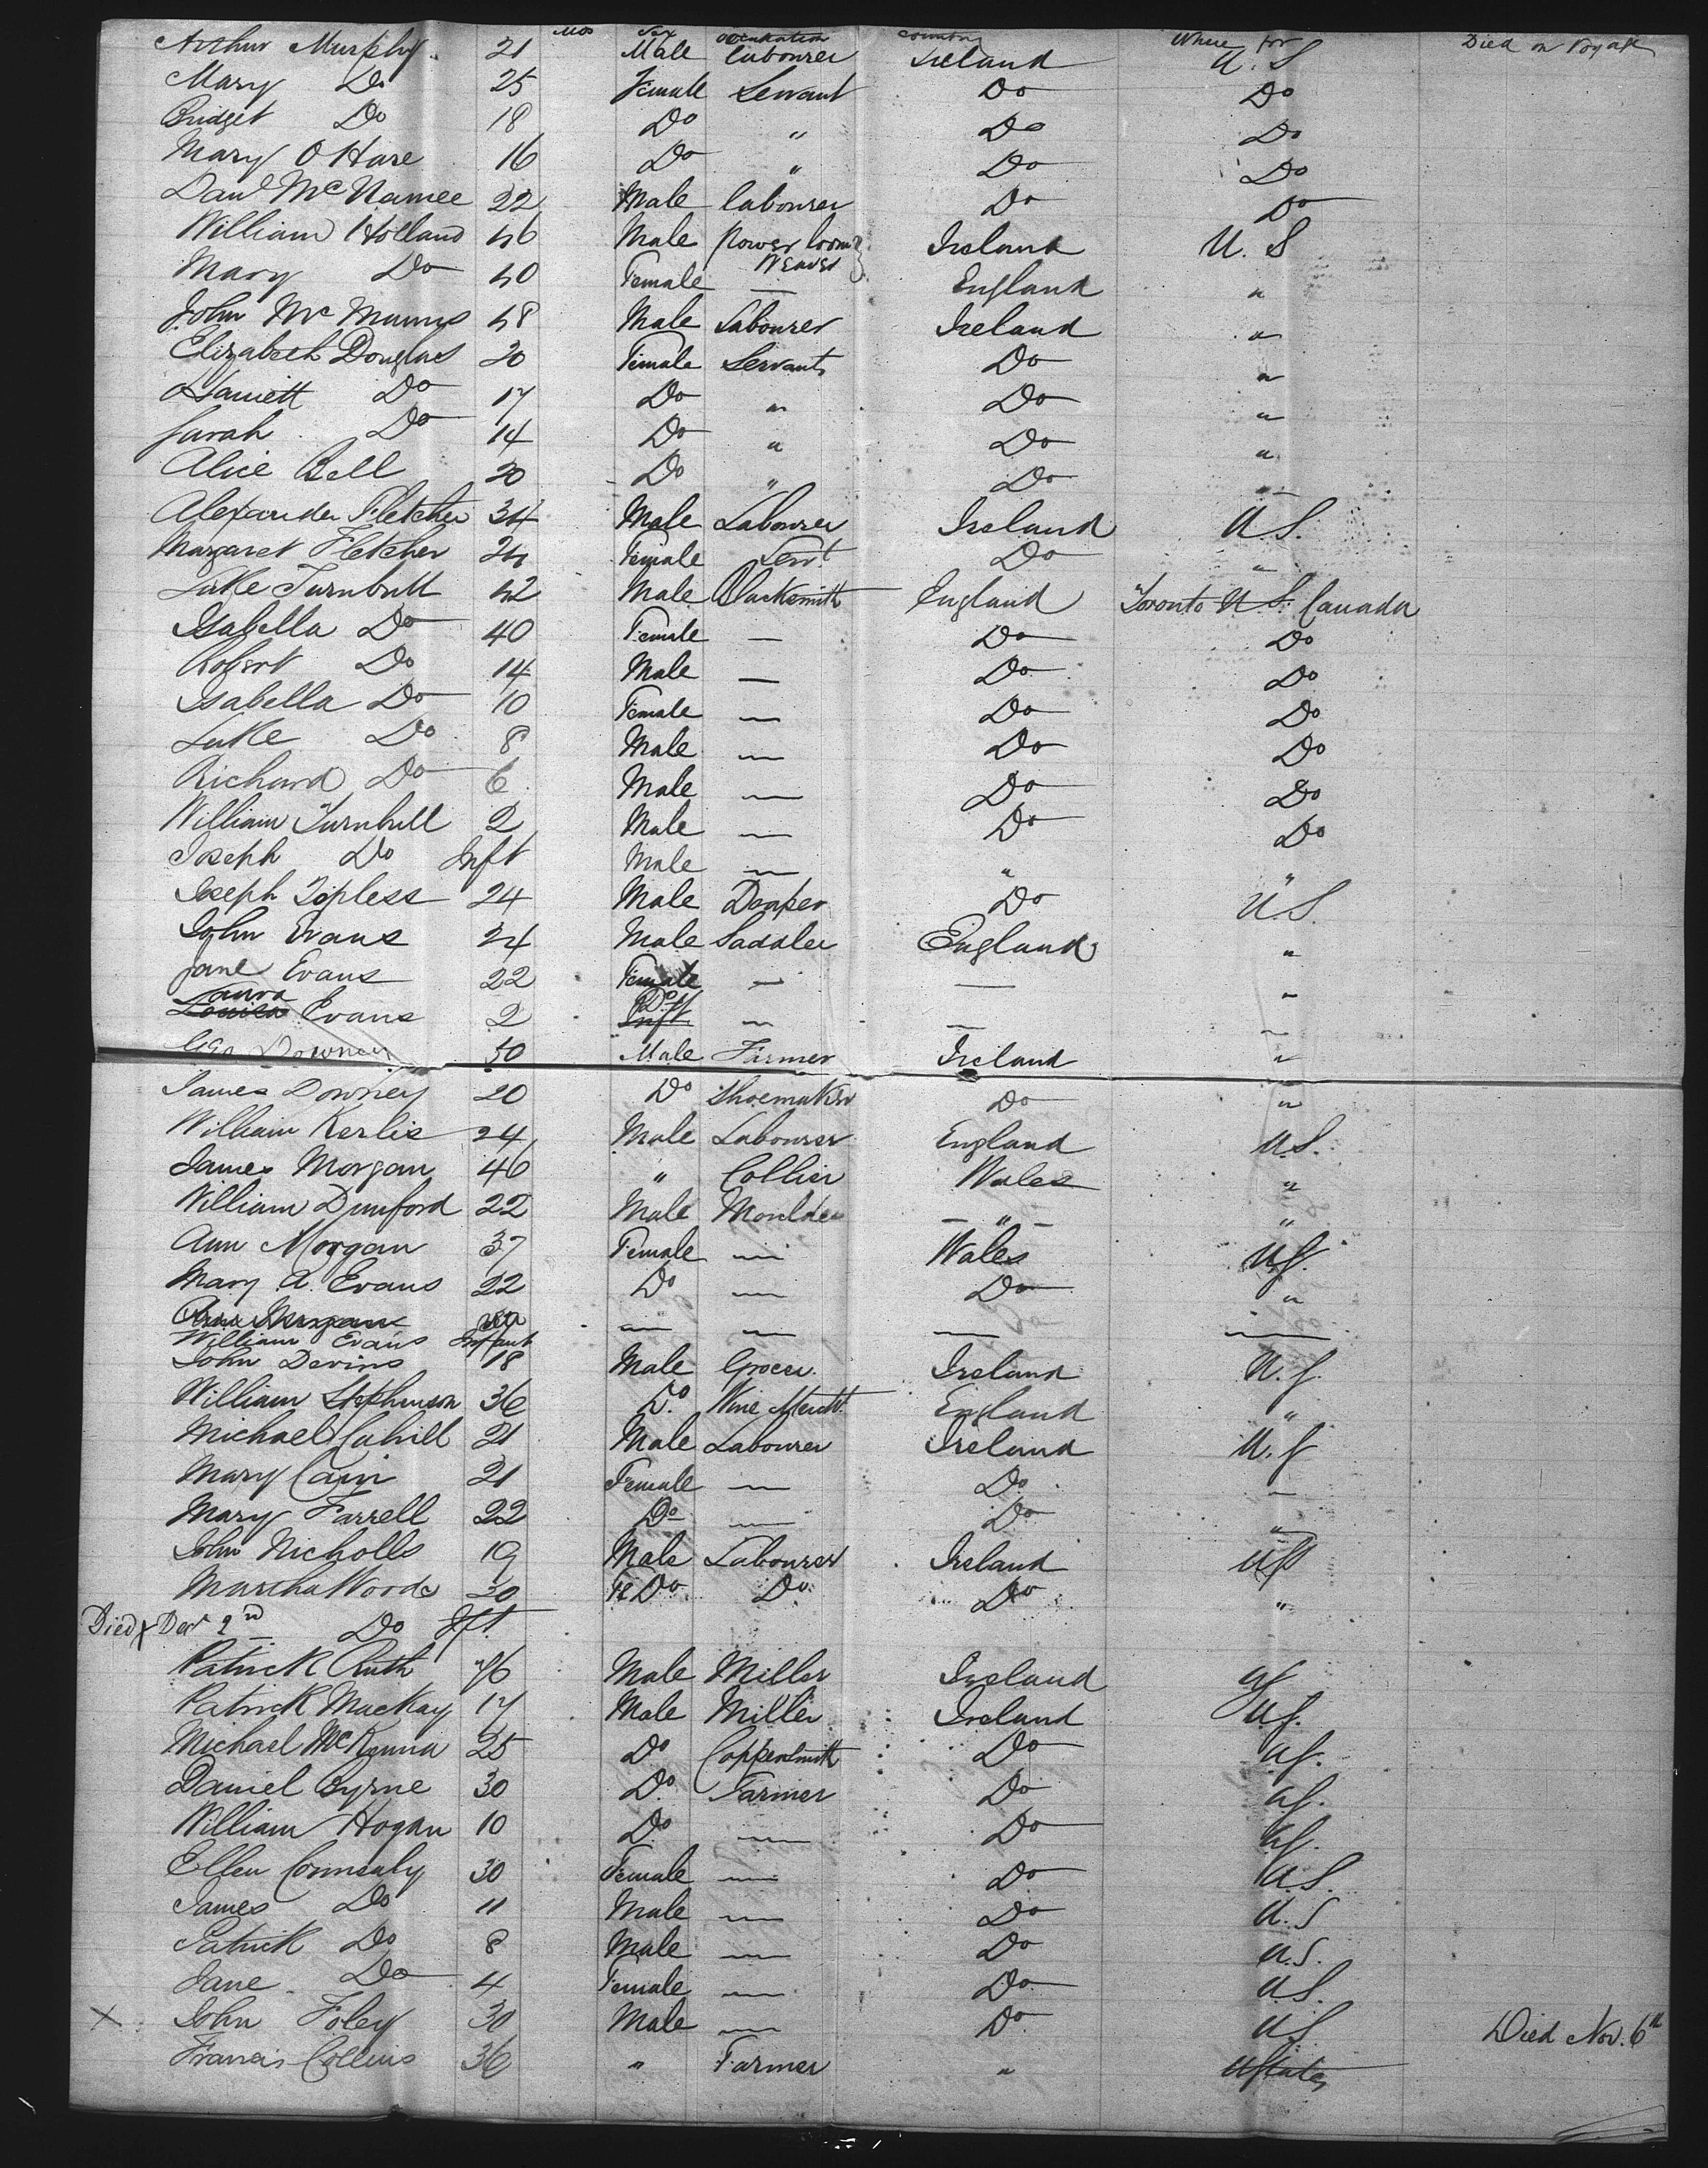 Mos Sex Occupation Country Where for Died on Voyage
Arthur Murphy 21 Male labourer Ireland U.S
Mary Do 25 Female Servant Do Do
Bridget Do 18 Do " Do Do
Mary O Hare 16 Do " Do Do
Danl McNamee 22 Male labourer Do Do
William Holland 46 Male Power loom Ireland U.S
Weaver
Mary Do 40 Female — England "
John McManus 48 Male Labourer Ireland "
Elizabeth Douglas 20 Female Servant Do "
Harriett Do 17 Do " Do "
Sarah Do 14 Do " Do "
Alice Bell 20 Do " Do "
Alexander Fletcher 34 Male Labourer Ireland U.S.
Margaret Fletcher 24 Female Servt Do "
Luke Turnbull 42 Male Blacksmith England Toronto U.S. Canada
Isabella Do 40 Female — Do Do
Robert Do 14 Male — Do Do
Isabella Do 10 Female — Do Do
Luke Do 8 Male — Do Do
Richard Do 6 Male — Do Do
William Turnbull 2 Male — Do Do
Joseph Do Inft Male — " "
Joseph Topless 24 Male Draper Do U.S.
John Evans 24 Male Saddler England "
Jane Evans 22 Female — — "
Laura
Louisa Evans 2 Do Inft — — "
Geo Downey 50 Male Farmer Ireland "
James Downey 20 Do Shoemaker Do "
William Kerlis 24 Male Labourer England U.S.
James Morgan 46 " Collier Wales "
William Dunford 22 Male Moulder — " — "
Ann Morgan 37 Female — Wales U.S.
Mary A. Evans 22 Do — Do "
Morgan — — — —
William Evans Infant
John Devins 18 Male Grocer Ireland U.S.
William Stephenson 36 Do Wine Mercht England "
Michael Cahill 21 Male Labourer Ireland U.S
Mary Cain 21 Female — Do "
Mary Farrell 22 Do — Do "
John Nicholls 19 Male Labourer Ireland US
Martha Woods 30 Fe Do Do Do "
Died X Decr 2nd Do Ift
Patrick Ruth 46 Male Miller Ireland US
Patrick MacKay 17 Male Miller Ireland U.S.
Michael McKenna 25 Do Coppersmith Do U.S.
Daniel Byrne 30 Do Farmer Do U.S.
William Hogan 10 Do — Do U.S.
Ellen Connealy 30 Female — Do U.S.
James Do 11 Male — Do U.S
Patrick Do 8 Male — Do U.S.
Jane Do 4 Female — Do U.S.
X John Foley 30 Male — Do U.S. Died Nov. 6th
Francis Collins 36 " Farmer " UStates